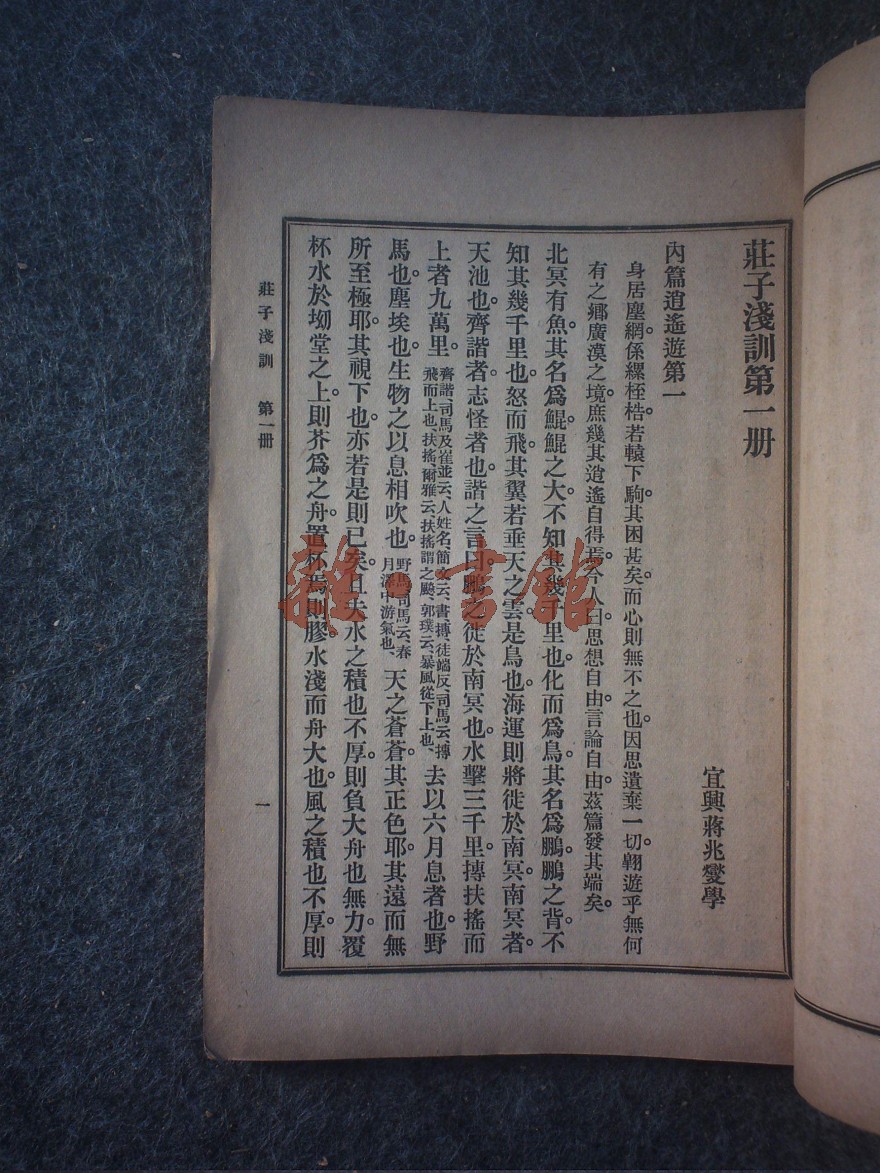 莊子淺訓第一册
宜興蔣兆燮學
內篇逍遙遊第一
身居塵網。係縲桎梏。若轅下駒。其困甚矣。而心則無不之也。因思遺棄一切。翱遊乎無何
有之鄉。廣漠之境。庶幾其逍遙自得焉。今人曰。思想自由。言論自由。茲篇發其端矣。
北冥有魚。其名爲鯤。鯤之大。不知其幾千里也。化而爲鳥。其名爲鵬。鵬之背。不
知其幾千里也。怒而飛。其翼若垂天之雲。是鳥也。海運則將徙於南冥。南冥者。
天池也。齊諧者。志怪者也。諧之言曰。鵬之徙於南冥也。水擊三千里。摶扶搖而
上者九萬里。
齊諧、司馬及崔並云、人姓名、簡文云、書、摶、徒端反、司馬云、摶
飛而上也、扶搖、爾雅云、扶搖謂之飈、郭璞云、暴風從下上也、
去以六月息者也。野
馬也。塵埃也。生物之以息相吹也。
野馬、司馬云、春
月澤中游氣也、
天之蒼蒼。其正色耶。其遠而無
所至極耶。其視下也。亦若是則已矣。且夫水之積也不厚。則負大舟也無力。覆
杯水於坳堂之上。則芥爲之舟。置杯焉則膠。水淺而舟大也。風之積也不厚。則
莊子淺訓 第一册
一
雜·書館